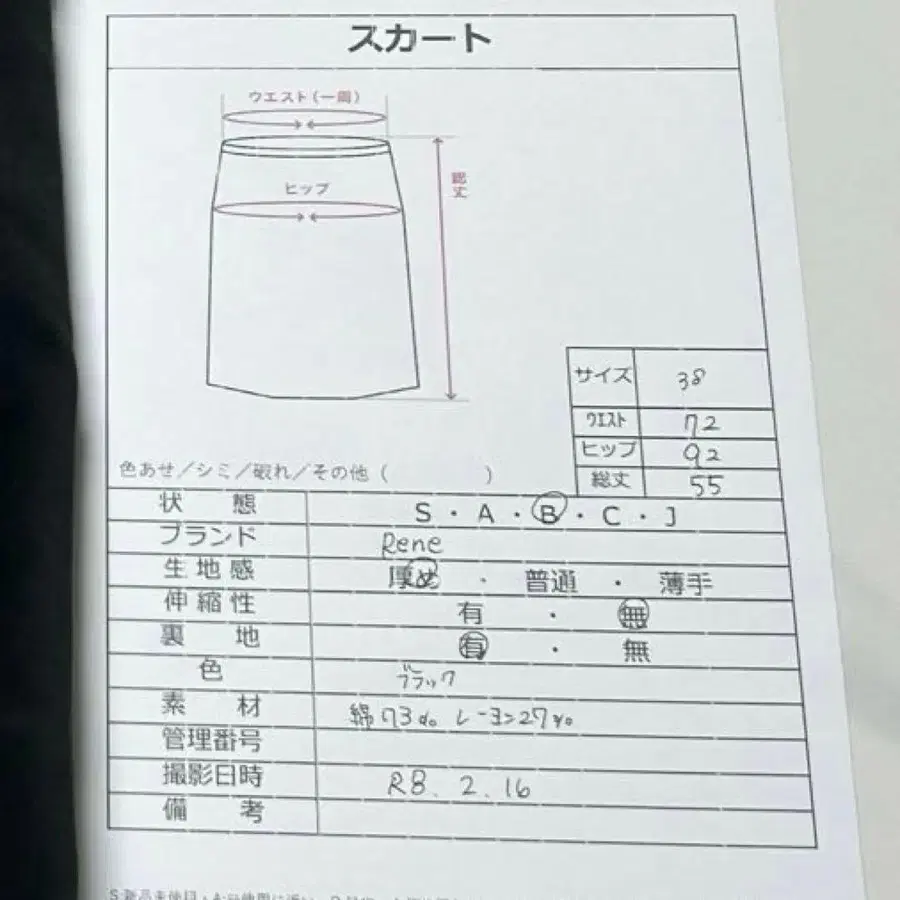 スカート
ウエスト(一周)
ヒップ
総丈
サイズ 38
ウエスト 72
ヒップ 92
総丈 55
色あせ／シミ／破れ／その他（　　　）
状態 S・A・B・C・J
ブランド Rene
生地感 厚め・普通・薄手
伸縮性 有・無
裏地 有・無
色 ブラック
素材 綿73% レーヨン27%
管理番号
撮影日時 R8.2.16
備考